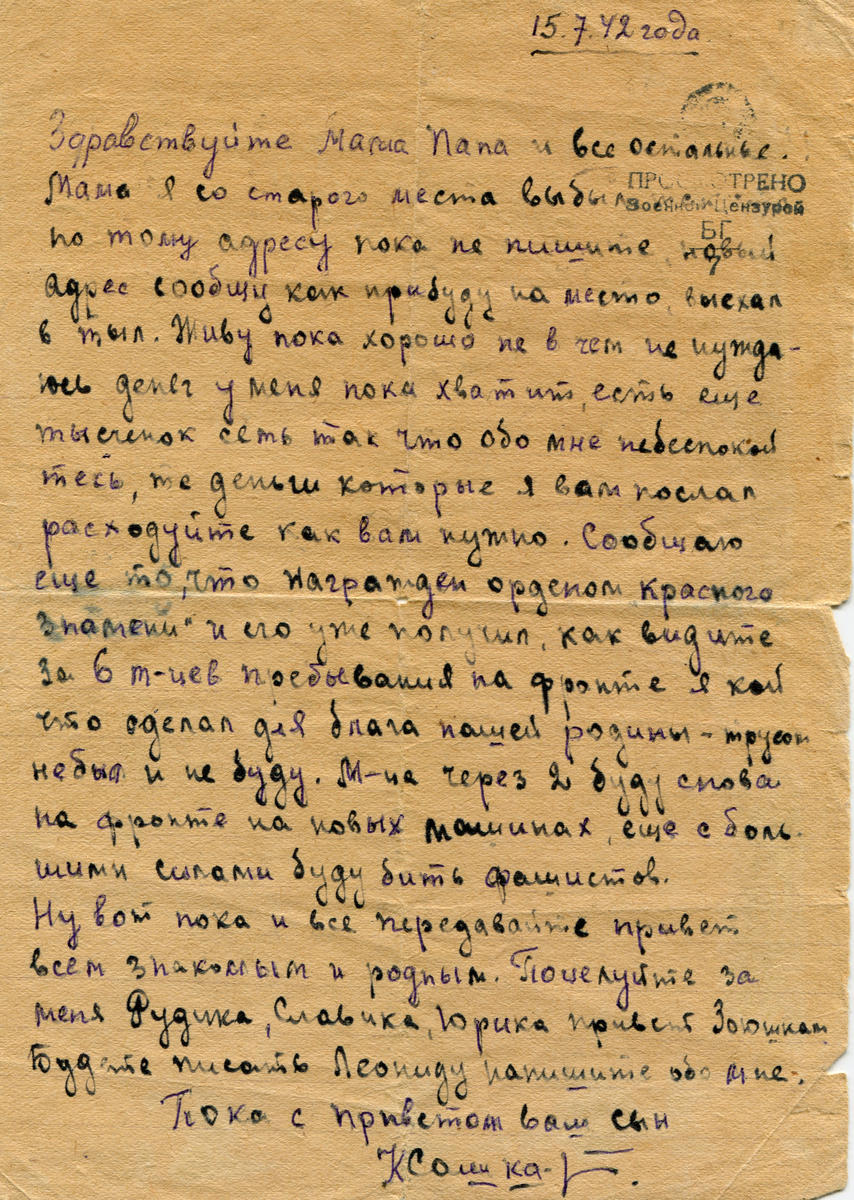 15.7.42 года
Здравствуйте Мама Папа и все остальные.
Мама я со старого места выбыл
ПРОСМОТРЕНО
Военной Цензурой
БГ
по тому адресу пока не пишите, новый
адрес сообщу как прибуду на место, выехал
в тыл. Живу пока хорошо не в чем не нужда-
юсь денег у меня пока хватит, есть еще
тысченок сеть так что обо мне небеспокой
тесь, те деньги которые я вам послал
расходуйте как вам нужно. Сообщаю
еще то, что награжден орденом „красного
знамени" и его уже получил, как видите
за 6 м-цев пребывания на фронте я кой
что сделал для блага нашей родины - трусом
небыл и не буду. М-ца через 2 буду снова
на фронте на новых машинах, еще с боль-
шими силами буду бить фашистов.
Ну вот пока и все передавайте привет
всем знакомым и родным. Поцелуйте за
меня Рудика, Славика, Юрика привет Зоюшкам
Будете писать Леониду напишите обо мне.
Пока с приветом ваш сын